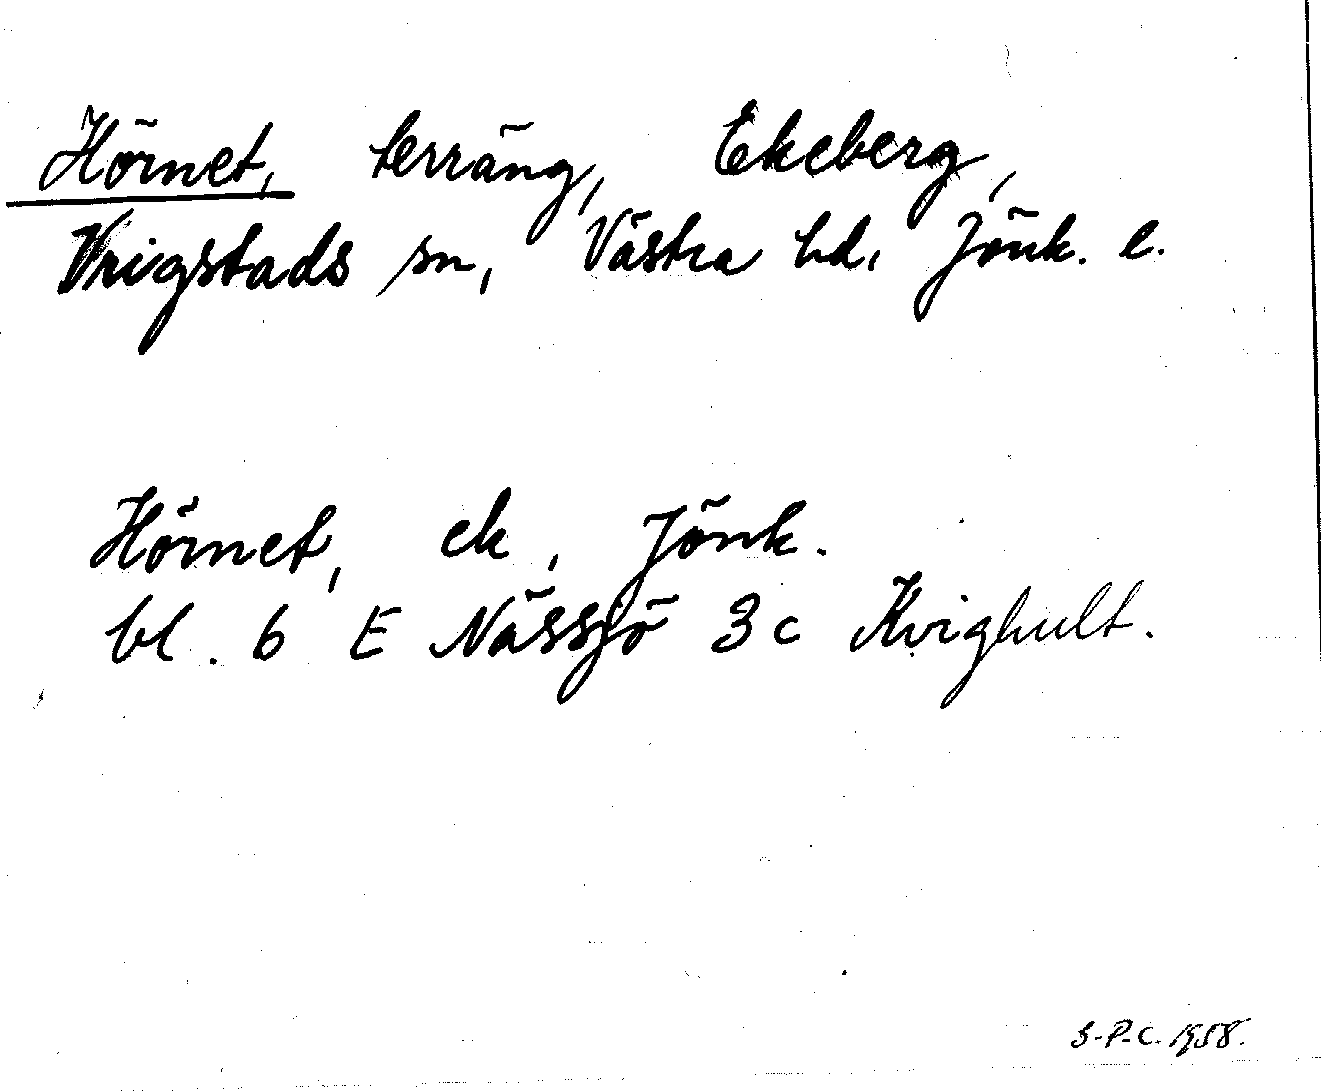 Hörnet, terräng, Ekeberg,
Vrigstads sn, Västra hd, Jönk. l.
Hörnet, ek, Jönk.
bl. 6 E Nässjö 3c Kvighult.
S-P-C. 1958.